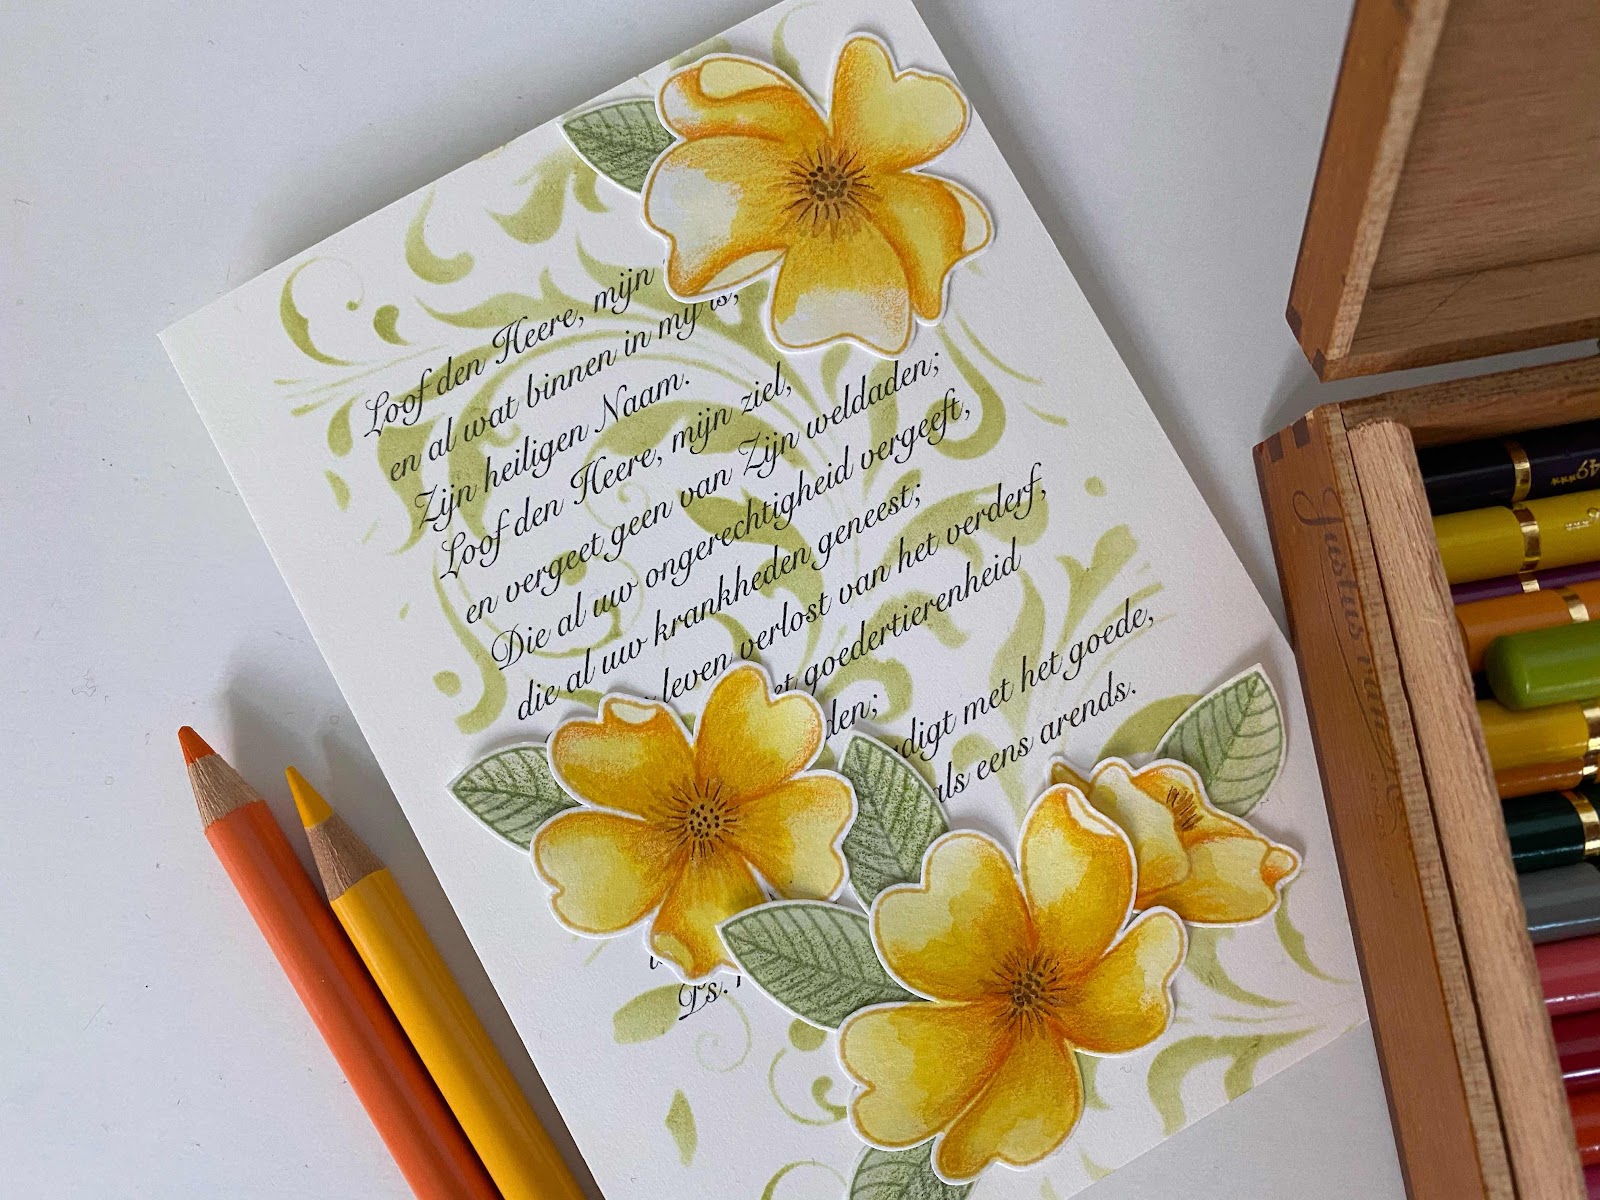 Loof den Heere, mijn
en al wat binnen in mij is,
Zijn heiligen Naam.
Loof den Heere, mijn ziel,
en vergeet geen van Zijn weldaden;
Die al uw ongerechtigheid vergeeft,
die al uw krankheden geneest;
leven verlost van het verderf,
goedertierenheid
digt met het goede,
als eens arends.
Ps.
49****